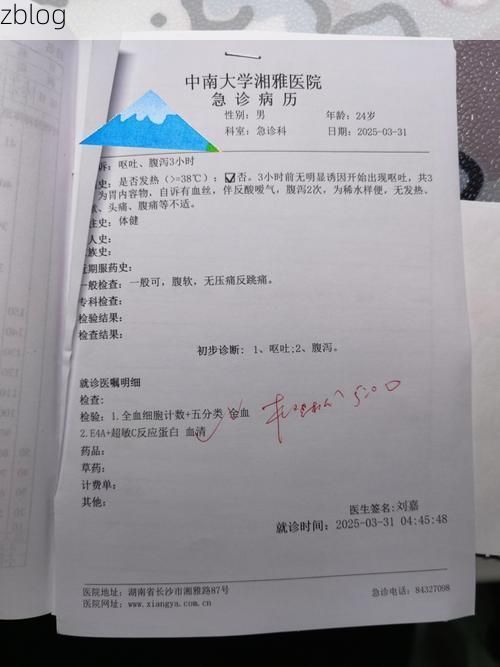 zblog
中南大学湘雅医院
急诊病历
性别：男 年龄：24岁
科室：急诊科 日期：2025-03-31
诉：呕吐、腹泻3小时
史：是否发热（>=38℃）：☑否。3小时前无明显诱因开始出现呕吐，共3
为胃内容物，自诉有血丝，伴反酸嗳气，腹泻2次，为稀水样便，无发热、
、头痛、腹痛等不适。
往史：体健
人史：
族史：
近期服药史：
一般检查：一般可，腹软，无压痛反跳痛。
专科检查：
检验结果：
检查结果：
初步诊断：1、呕吐;2、腹泻。
就诊医嘱明细
检查：
检验：1.全血细胞计数+五分类 全血
2.E4A+超敏C反应蛋白 血清
5:00
药品：
草药：
计费单：
其他：
医生签名:刘嘉
就诊时间：2025-03-31 04:45:48
医院地址：湖南省长沙市湘雅路87号 急诊电话：84327098
医院网址：www.xiangya.com.cn